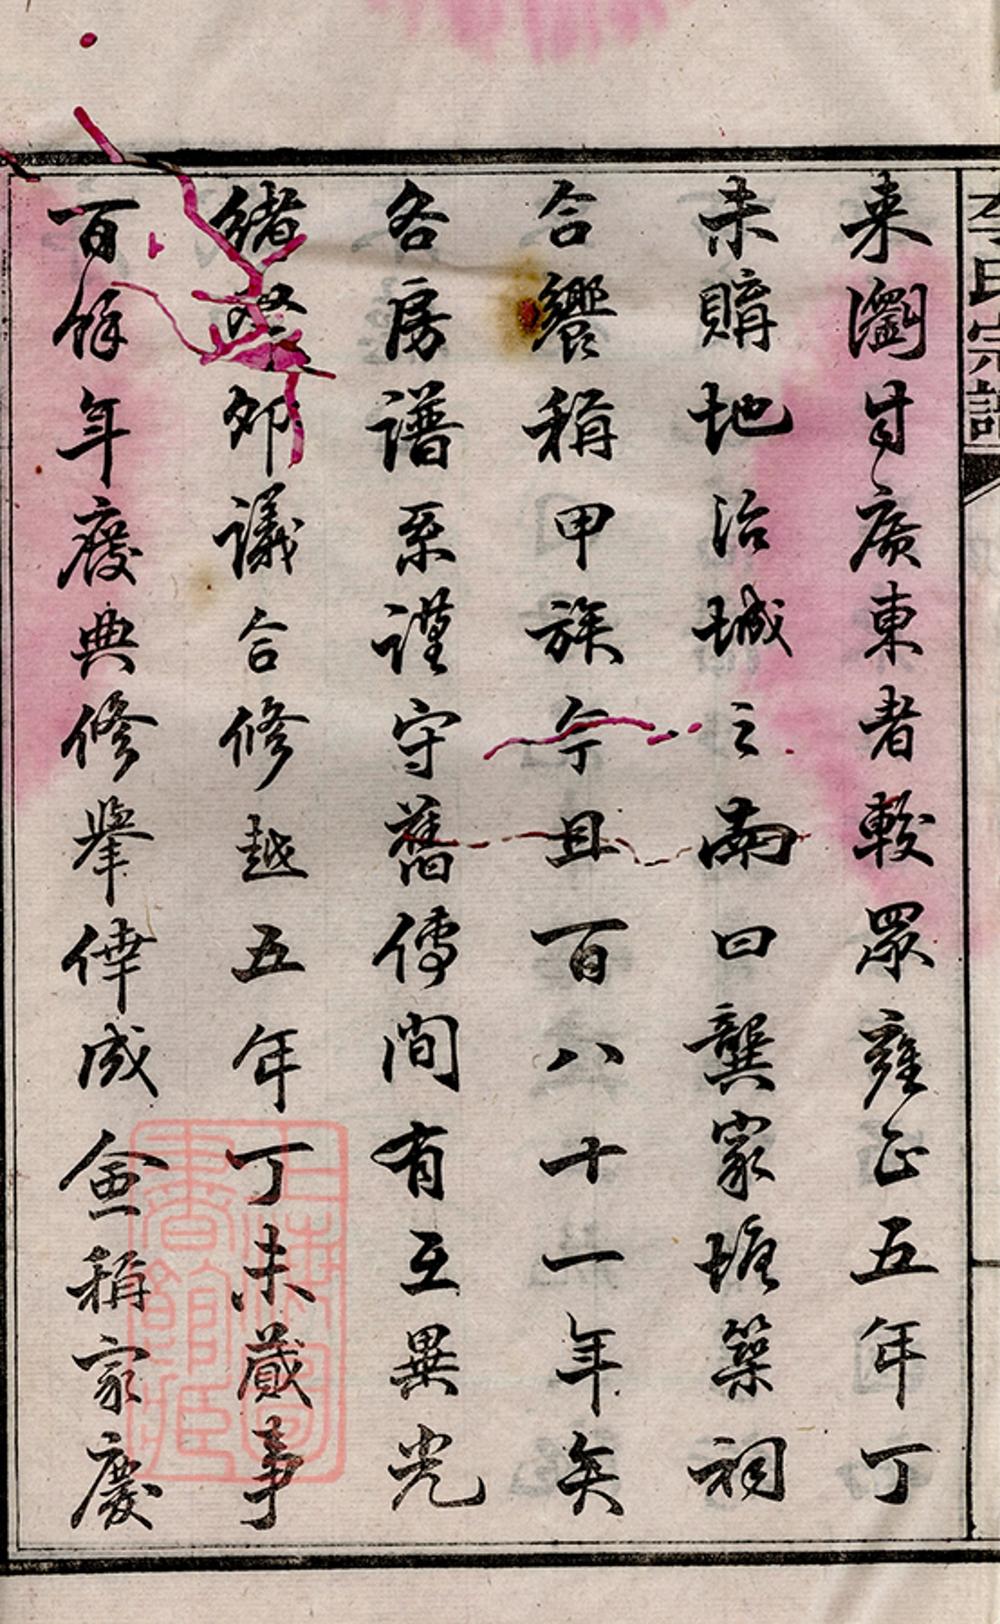 李氏宗譜
来瀏廣東者較眾雍正五年丁
未購地治城之南曰龔家塘築祠
合饗稱甲族今且百八十一年矣
各房譜系謹守舊傳間有互異光
緒癸卯議合修越五年丁未蕆事
百餘年廢典修舉倖成僉稱家慶
上海圖
書館藏